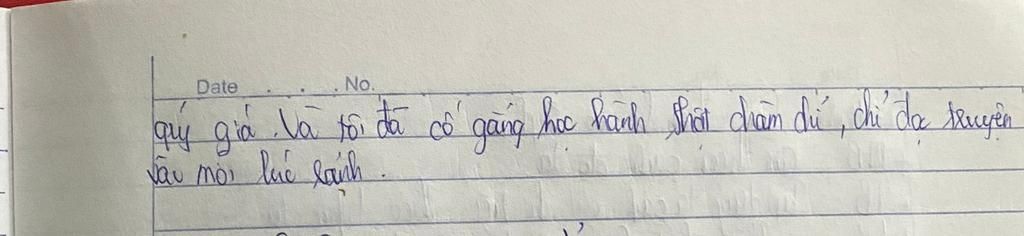 Date . . . . No.
quý giá. Và tôi đã cố gắng học hành thật chăm chỉ, chỉ đọc truyện
vào mỗi lúc rảnh.